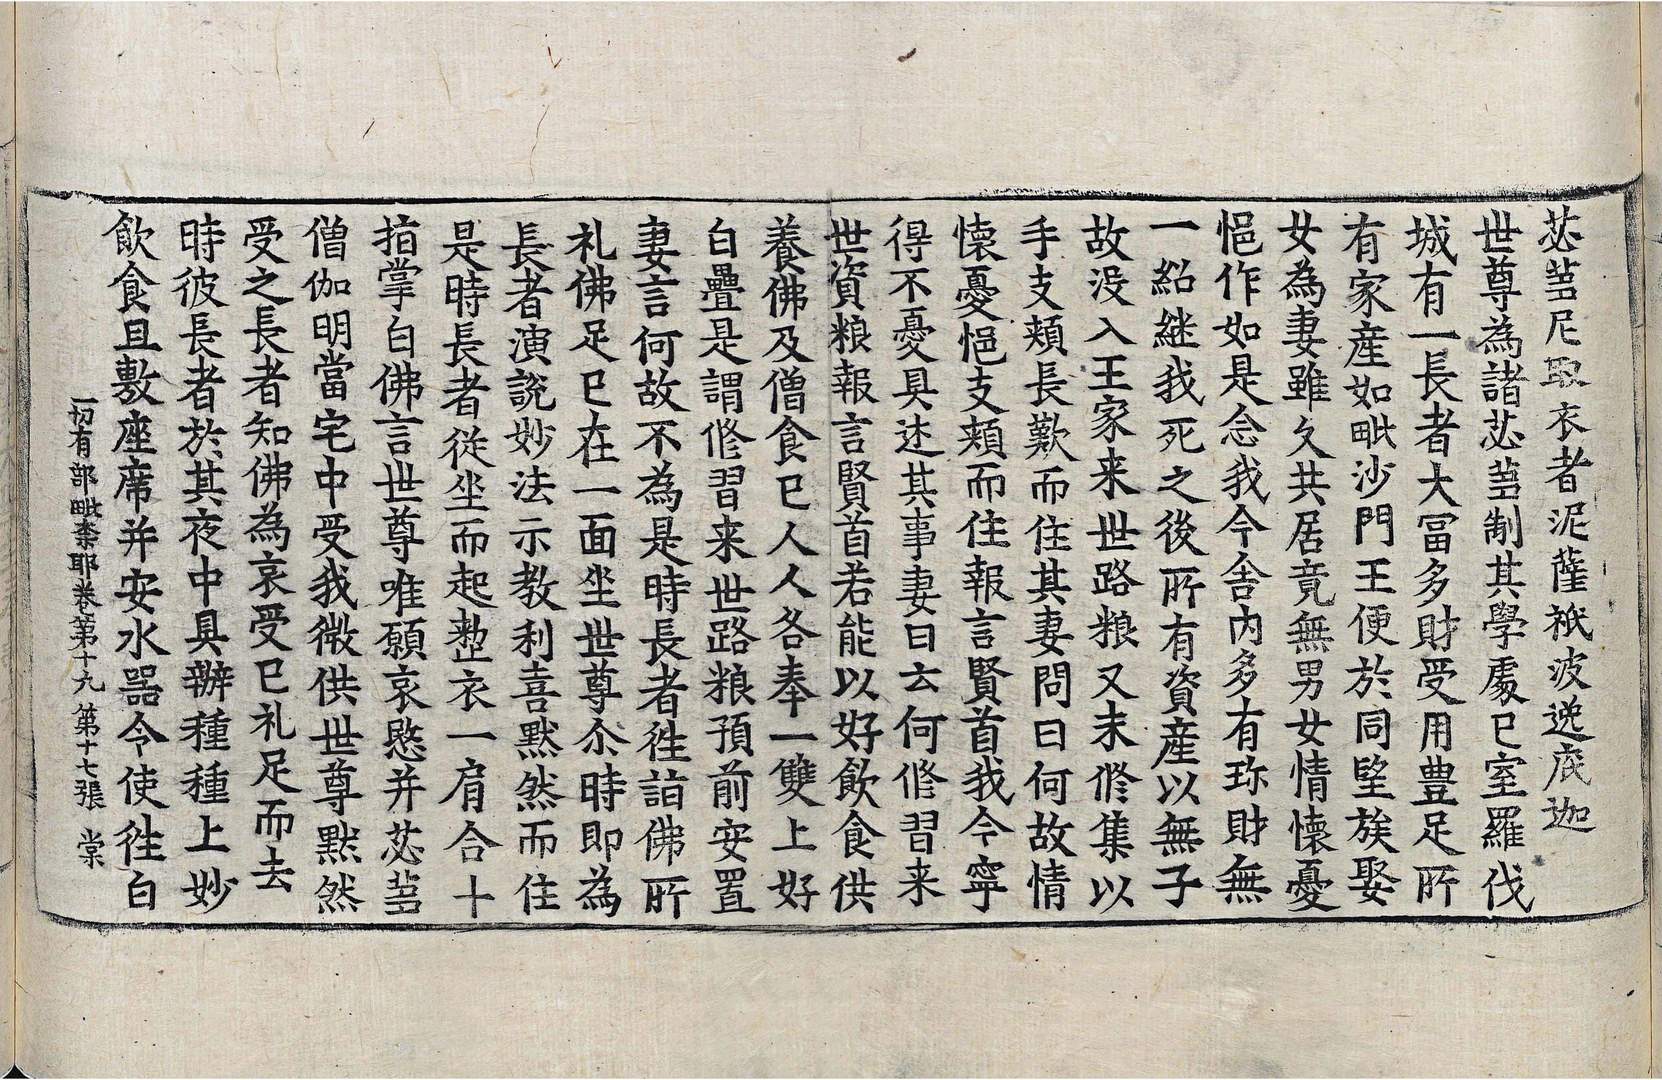 苾芻尼取衣者泥薩祇波逸底迦
世尊為諸苾芻制其學處已室羅伐
城有一長者大富多財受用豊足所
有家產如毗沙門王便於同望族娶
女為妻雖久共居竟無男女情懷憂
悒作如是念我今舍内多有珎財無
一紹継我死之後所有資產以無子
故没入王家来世路粮又未修集以
手支頰長歎而住其妻問曰何故情
懷憂悒支頰而住報言賢首我今寧
得不憂具述其事妻曰云何修習来
世資粮報言賢首若能以好飲食供
養佛及僧食已人人各奉一雙上好
白疊是謂修習来世路粮預前安置
妻言何故不為是時長者往詣佛所
礼佛足已在一面坐世尊尒時即為
長者演說妙法示教利喜黙然而住
是時長者從坐而起整衣一肩合十
指掌白佛言世尊唯願哀愍并苾芻
僧伽明當宅中受我微供世尊黙然
受之長者知佛為哀受已礼足而去
時彼長者於其夜中具辦種種上妙
飲食且敷座席并安水器令使往白
一切有部毗奈耶卷第十九 第十七張 棠